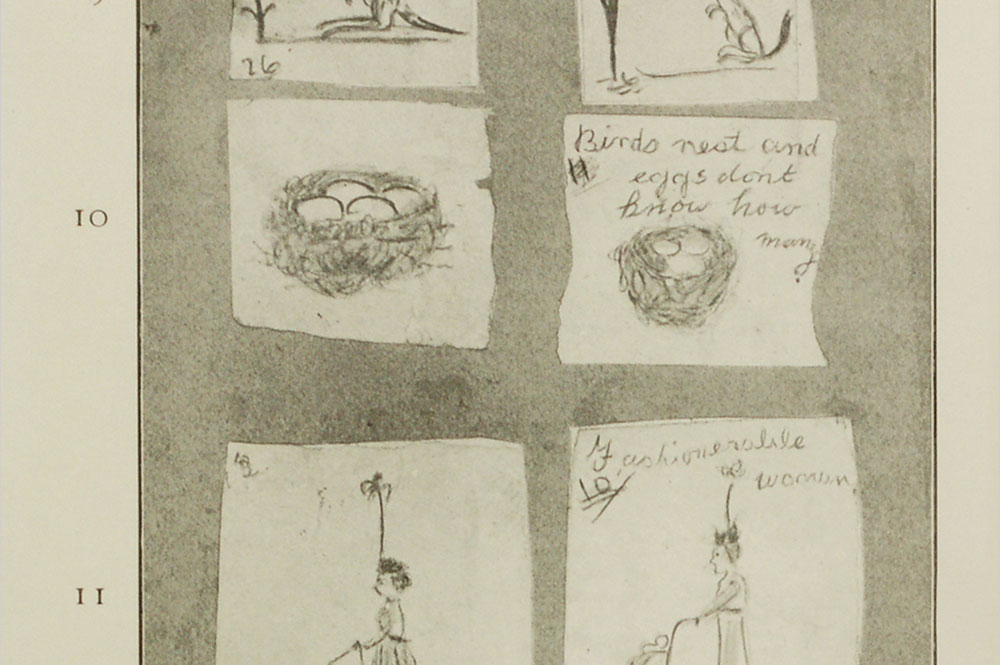 26
10
Birds nest and
11
eggs dont
know how
many
Fashionerablle
10
woman
11